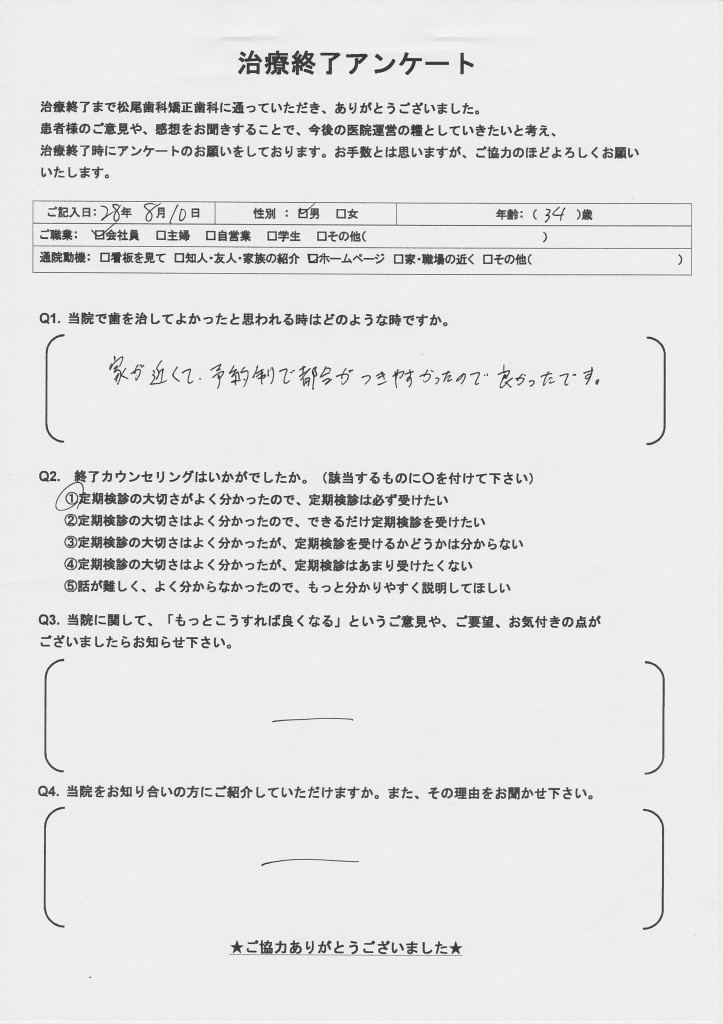 治療終了アンケート
治療終了まで松尾歯科矯正歯科に通っていただき、ありがとうございました。
患者様のご意見や、感想をお聞きすることで、今後の医院運営の糧としていきたいと考え、
治療終了時にアンケートのお願いをしております。お手数とは思いますが、ご協力のほどよろしくお願い
いたします。
ご記入日:28年 8月10日 性別 : ☑男 □女 年齢:( 34 )歳
ご職業: ☑会社員 □主婦 □自営業 □学生 □その他( )
通院動機: □看板を見て □知人・友人・家族の紹介 ☑ホームページ □家・職場の近く □その他( )
Q1. 当院で歯を治してよかったと思われる時はどのような時ですか。
家が近くて、予約制で都合がつきやすかったので良かったです。
Q2. 終了カウンセリングはいかがでしたか。（該当するものに〇を付けて下さい）
①定期検診の大切さがよく分かったので、定期検診は必ず受けたい
②定期検診の大切さはよく分かったので、できるだけ定期検診を受けたい
③定期検診の大切さはよく分かったが、定期検診を受けるかどうかは分からない
④定期検診の大切さはよく分かったが、定期検診はあまり受けたくない
⑤話が難しく、よく分からなかったので、もっと分かりやすく説明してほしい
Q3. 当院に関して、「もっとこうすれば良くなる」というご意見や、ご要望、お気付きの点が
ございましたらお知らせ下さい。
―
Q4. 当院をお知り合いの方にご紹介していただけますか。また、その理由をお聞かせ下さい。
―
★ご協力ありがとうございました★